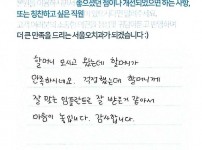 좋으셨던 점이나 개선되었으면 하는 사항,
또는 칭찬하고 싶은 직원
더 큰 만족을 드리는 서울오치과가 되겠습니다 :)
할머니 모시고 왔는데 할머니가
만족하시네요. 걱정했는데 할머니께
잘 맞는 임플란트로 잘 받은거 같아서
마음이 놓입니다. 감사합니다.